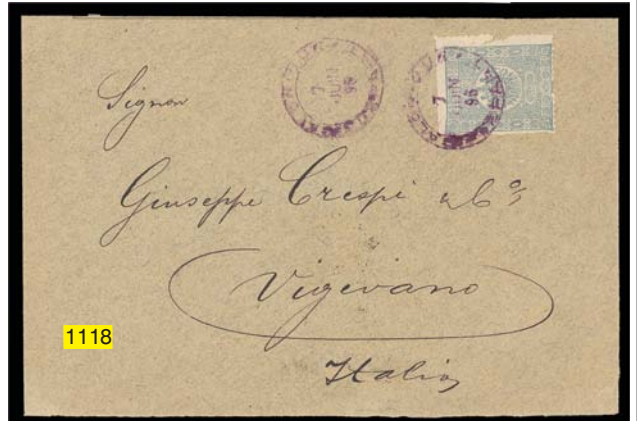 7
JUIN
96
7
JUIN
96
Signor
Giuseppe Crespi & Co
Vigevano
1118
Italia